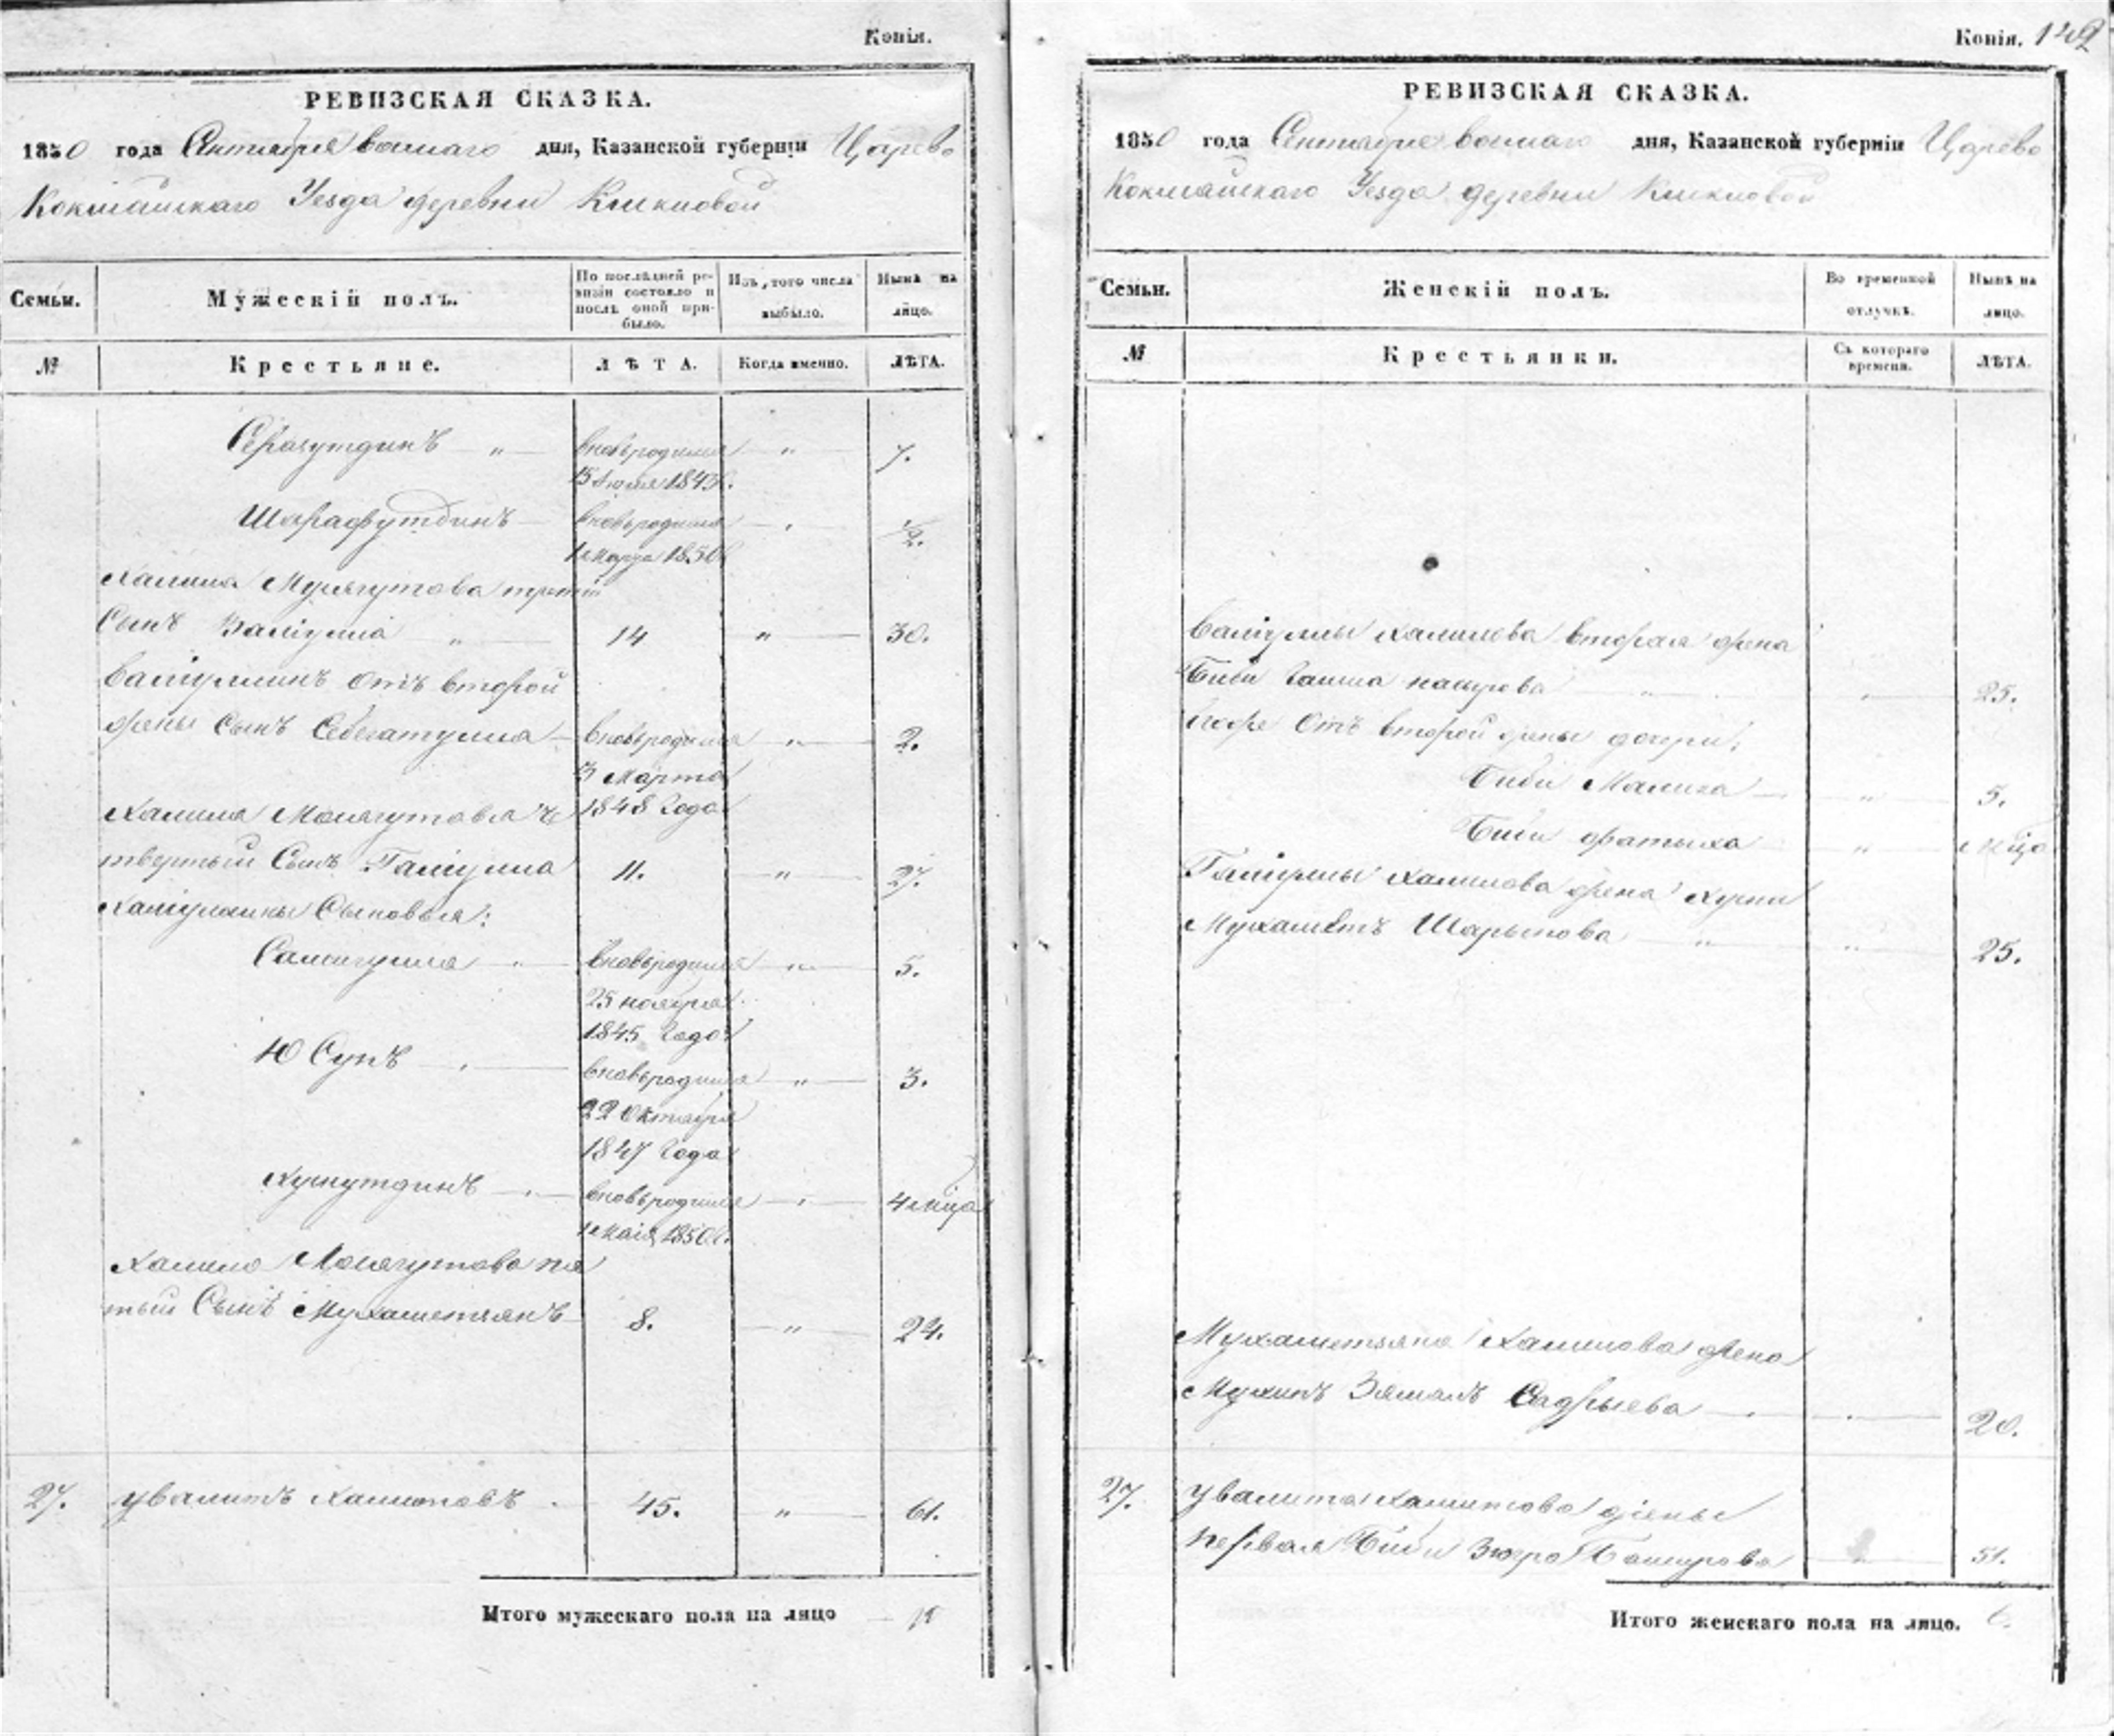 Копія.
РЕВИЗСКАЯ СКАЗКА.
1850 года Сентября восмаго дня, Казанской губерніи Царево
Кокшайскаго Уезда деревни
Семьи. Мужескій полъ. По послѣдней ревизіи состояло и послѣ оной прибыло. Изъ того числа выбыло. Нынѣ на лицо.
№ Крестьяне. ЛѢТА. Когда именно. ЛѢТА.
Серазутдинъ „ вновьродился „ 7.
15 1843г.
Шарафутдинъ вновьродился „ 1/2.
1 марта 1850г.
Халила третій
Сынъ Валіулла „ 14 „ 30.
Валіуллинъ отъ второй
жены Сынъ Себегатулла вновьродился „ 2.
3 марта
Халила че 1848 года
твертый Сынъ Галіулла 11. „ 27.
Сыновья:
Самигулла „ вновьродился „ 5.
25 ноября
1845 года
Юсупъ „ вновьродился „ 3.
22 октября
1847 года
вновьродился „ 4 м̃ца
1 маія 1850г.
Халила пя
тый Сынъ Мухаметзянъ 8. „ 24.
27. Увалитъ Халитовъ 45. „ 61.
Итого мужескаго пола на лицо 11
Копія. 142
РЕВИЗСКАЯ СКАЗКА.
1850 года Сентября восмаго дня, Казанской губерніи Царево
Кокшайскаго Уезда деревни
Семьи. Женскій полъ. Во временной отлучкѣ. Нынѣ на лицо.
№ Крестьянки. Съ котораго времени. ЛѢТА.
Валіуллы Халилова вторая жена
Биби Гайша „ „ 25.
Егоже отъ второй жены дочери:
Биби Малика „ 5.
Биби Фатыха „ м̃ца
Галіуллы Халилова жена
Мухаметъ Шарыпова „ „ 25.
Мухаметзяна Халилова жена
Зямалъ Садрыева „ 20.
27. Увалита Халитова жены
первая Биби Зюгра Башурова „ 51.
Итого женскаго пола на лицо. 6.